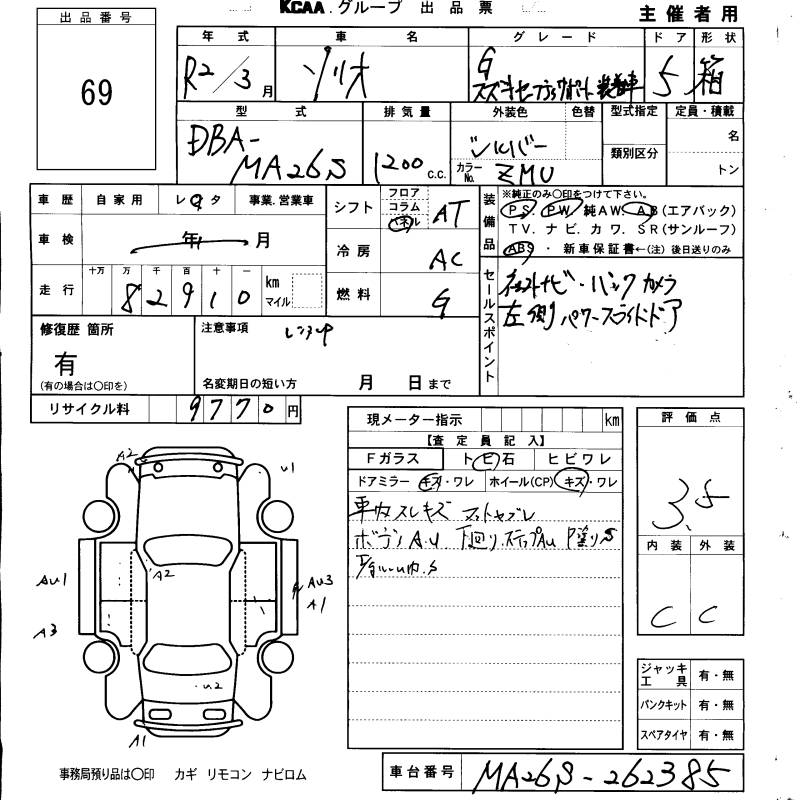 KCAA.グループ 出品票
主催者用
出品番号
69
年式 車名 グレード ドア 形状
R2/3月 ソリオ G 5 箱
スズキセーフティサポート装着車
型式 排気量 外装色 色替 型式指定 定員・積載
DBA-
MA26S 1200c.c. シルバー 名
カラーNo. ZMU 類別区分 トン
車歴 自家用 レタ 事業.営業車
シフト フロア コラム パネル AT
装備品 ※純正のみ〇印をつけて下さい。
PS. PW. 純AW. AB(エアバック)
TV. ナビ. カワ. SR(サンルーフ)
ABS ・ 新車保証書←(注) 後日送りのみ
車検 年 月
冷房 AC
走行 十万 万 千 百 十 一
82910 km マイル
燃料 G
セールスポイント
社外ナビ・バックカメラ
左側パワースライドドア
修復歴 箇所
有
(有の場合は〇印を)
注意事項 レンタup
名変期日の短い方 月 日まで
リサイクル料 9770円
現メーター指示 km
【査定員記入】
Fガラス トビ石 ヒビワレ
ドアミラー キズ・ワレ ホイール(CP) キズ・ワレ
車内スレキズ フットヤブレ
ボデーA.U 下回り.ステップAu
評価点
3.5
内装 外装
C C
A2 U1
A2
AU1 AU3
A1
A3
U2
A1
ジャッキ工具 有・無
パンクキット 有・無
スペアタイヤ 有・無
事務局預り品は〇印 カギ リモコン ナビロム
車台番号 MA26S-262385